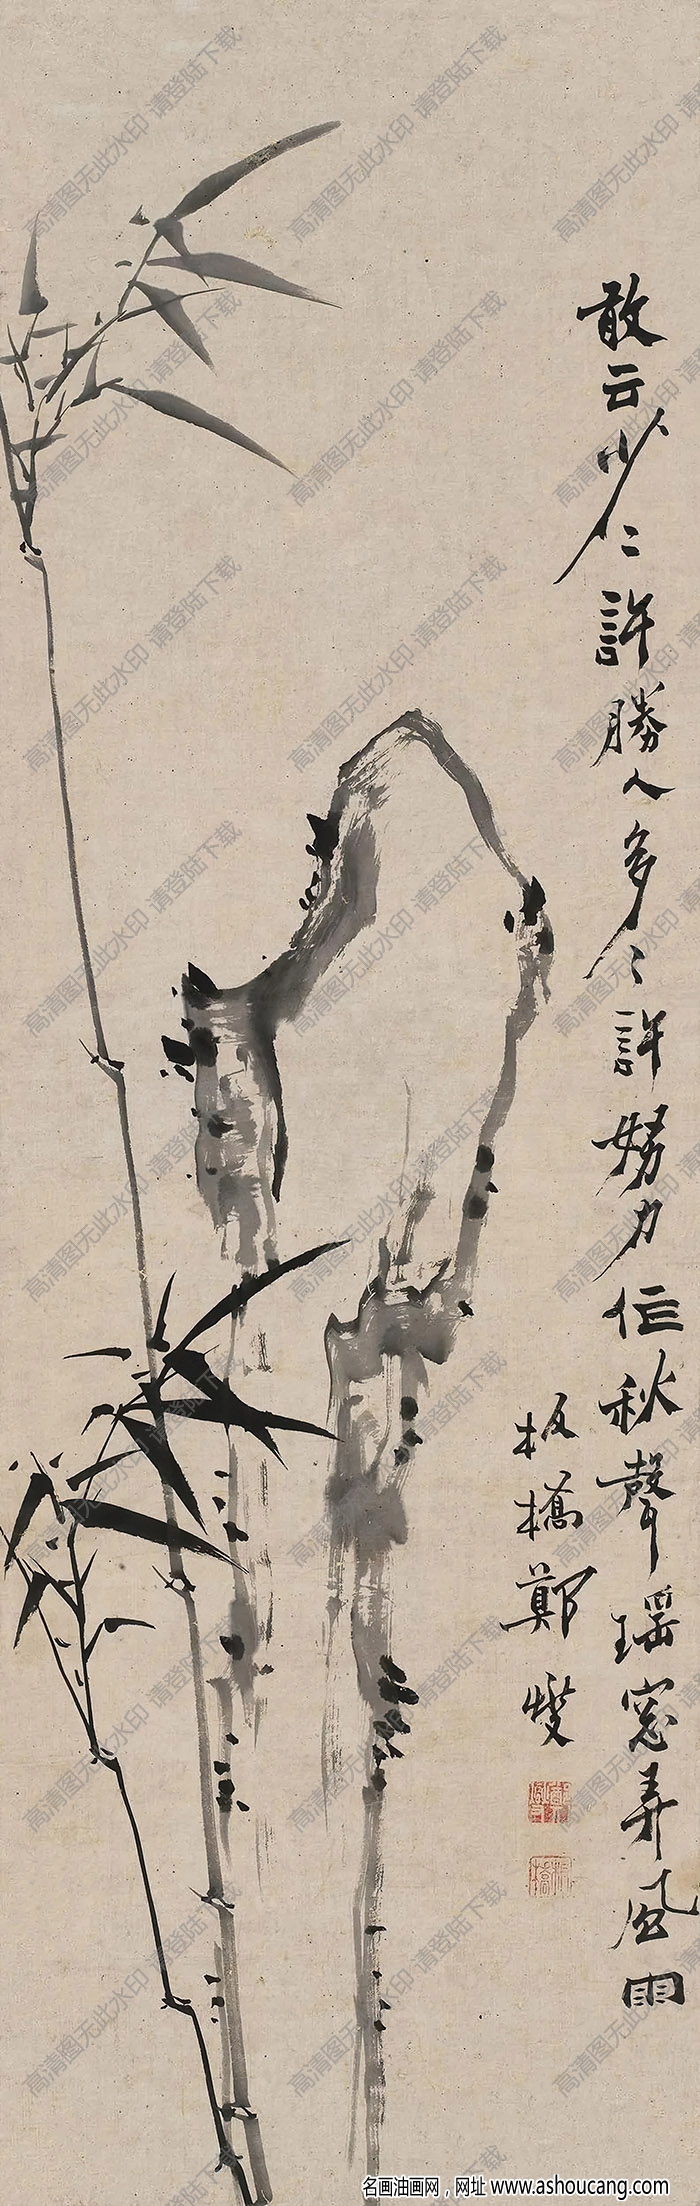 敢云少〻許勝人多〻許努力作秋聲瑶窓弄風雨
板橋鄭燮
高清图无此水印 请登陆下载
名画油画网，网址 www.ashoucang.com